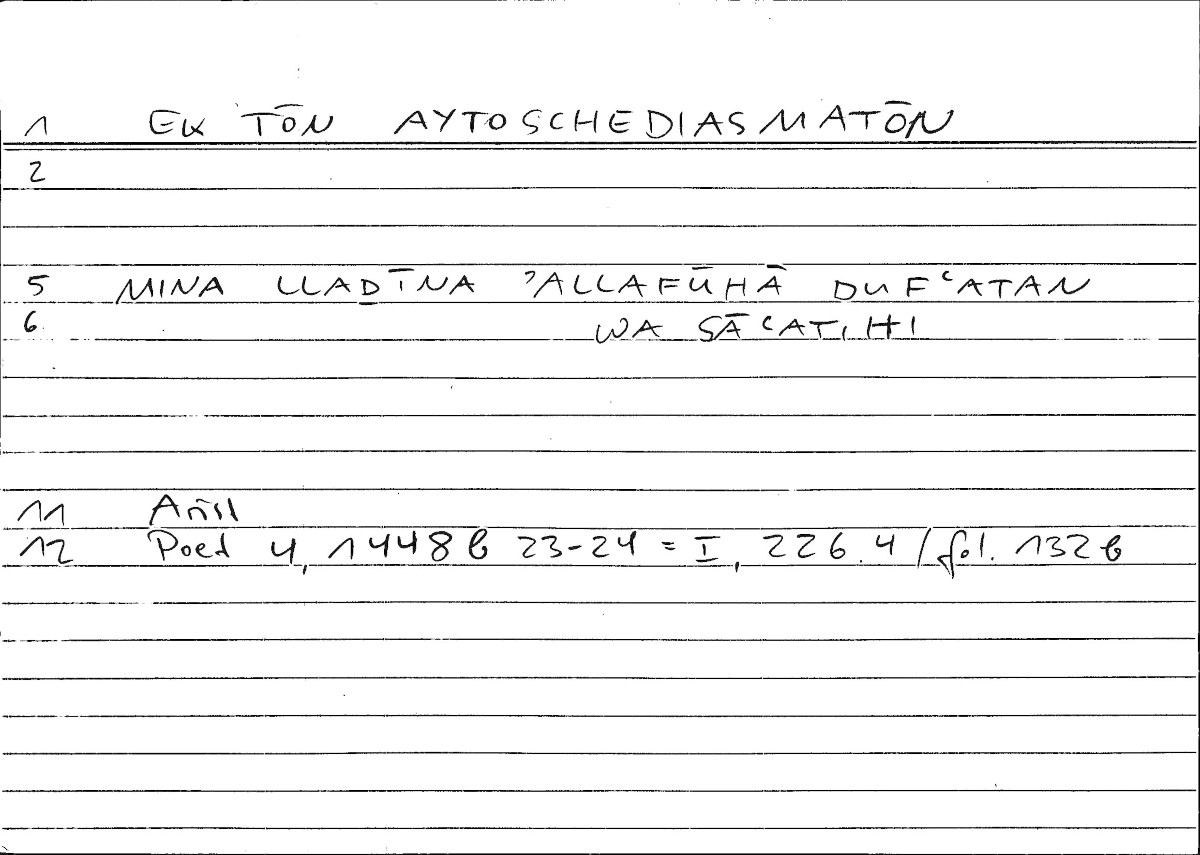 1 EK TŌN AYTOSCHEDIASMATŌN
2
5 MINA LLAḎĪNA ʾALLAFŪHĀ DUFʿATAN
6 WA SĀʿATIHI
11 Arist
12 Poet 4, 1448 b 23-24 = I, 226.4 / fol. 132 b